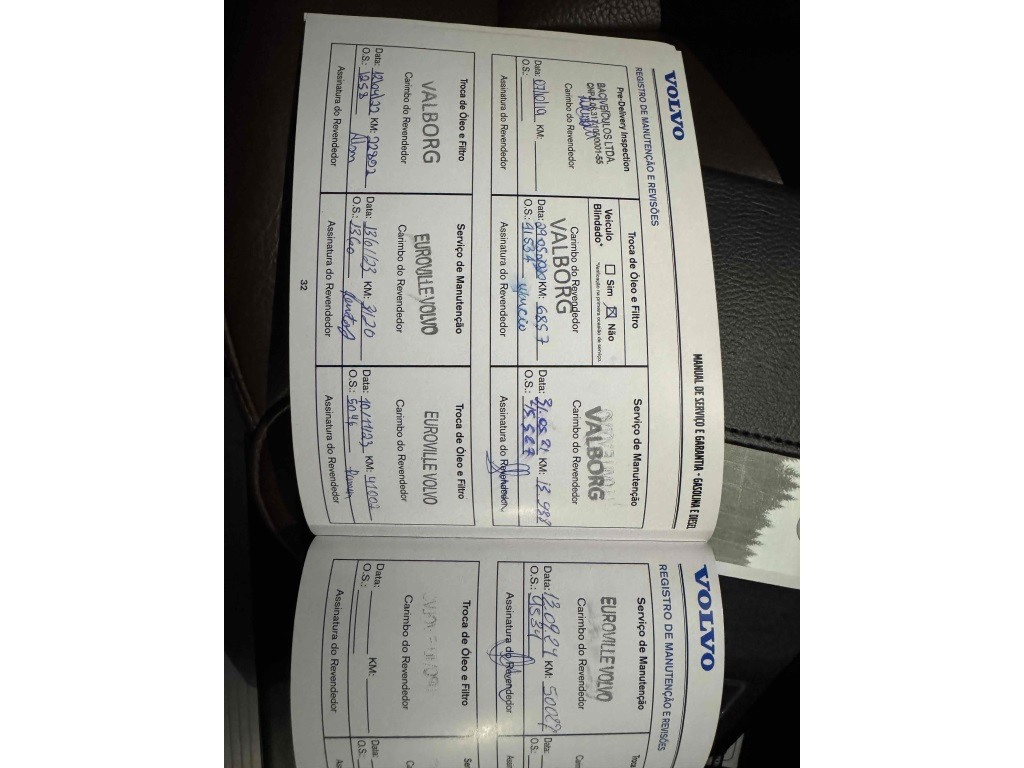 MANUAL DE SERVIÇO E GARANTIA - GASOLINA E DIESEL
VOLVO
REGISTRO DE MANUTENÇÃO E REVISÕES
Pre-Delivery Inspection
BACIVEÍCULOS LTDA.
Carimbo do Revendedor
Data: 07/10/19 KM:
O.S.:
Assinatura do Revendedor
Troca de Óleo e Filtro
Veículo Blindado* Sim Não
*Verificação na primeira ocasião de serviço.
Carimbo do Revendedor
VALBORG
KM: 6857
O.S.: 41534
Assinatura do Revendedor
Serviço de Manutenção
VALBORG
Carimbo do Revendedor
Data: 31.05.21 KM: 13.938
O.S.: 75.527
Assinatura do Revendedor
Troca de Óleo e Filtro
VALBORG
Carimbo do Revendedor
KM: 22892
O.S.: 1258
Assinatura do Revendedor
Serviço de Manutenção
EUROVILLE VOLVO
Carimbo do Revendedor
Data: 13/01/23 KM:
O.S.: 1360
Assinatura do Revendedor
Troca de Óleo e Filtro
EUROVILLE VOLVO
Carimbo do Revendedor
Data: 10/11/23 KM: 41002
O.S.: 5046
Assinatura do Revendedor
32
VOLVO
REGISTRO DE MANUTENÇÃO E REVISÕES
Serviço de Manutenção
EUROVILLE VOLVO
Carimbo do Revendedor
Data: 12.09.24 KM: 50087
O.S.: 9534
Assinatura do Revendedor
Troca de Óleo e Filtro
Carimbo do Revendedor
Data: KM:
O.S.:
Assinatura do Revendedor
Data:
O.S.:
Data:
O.S.: